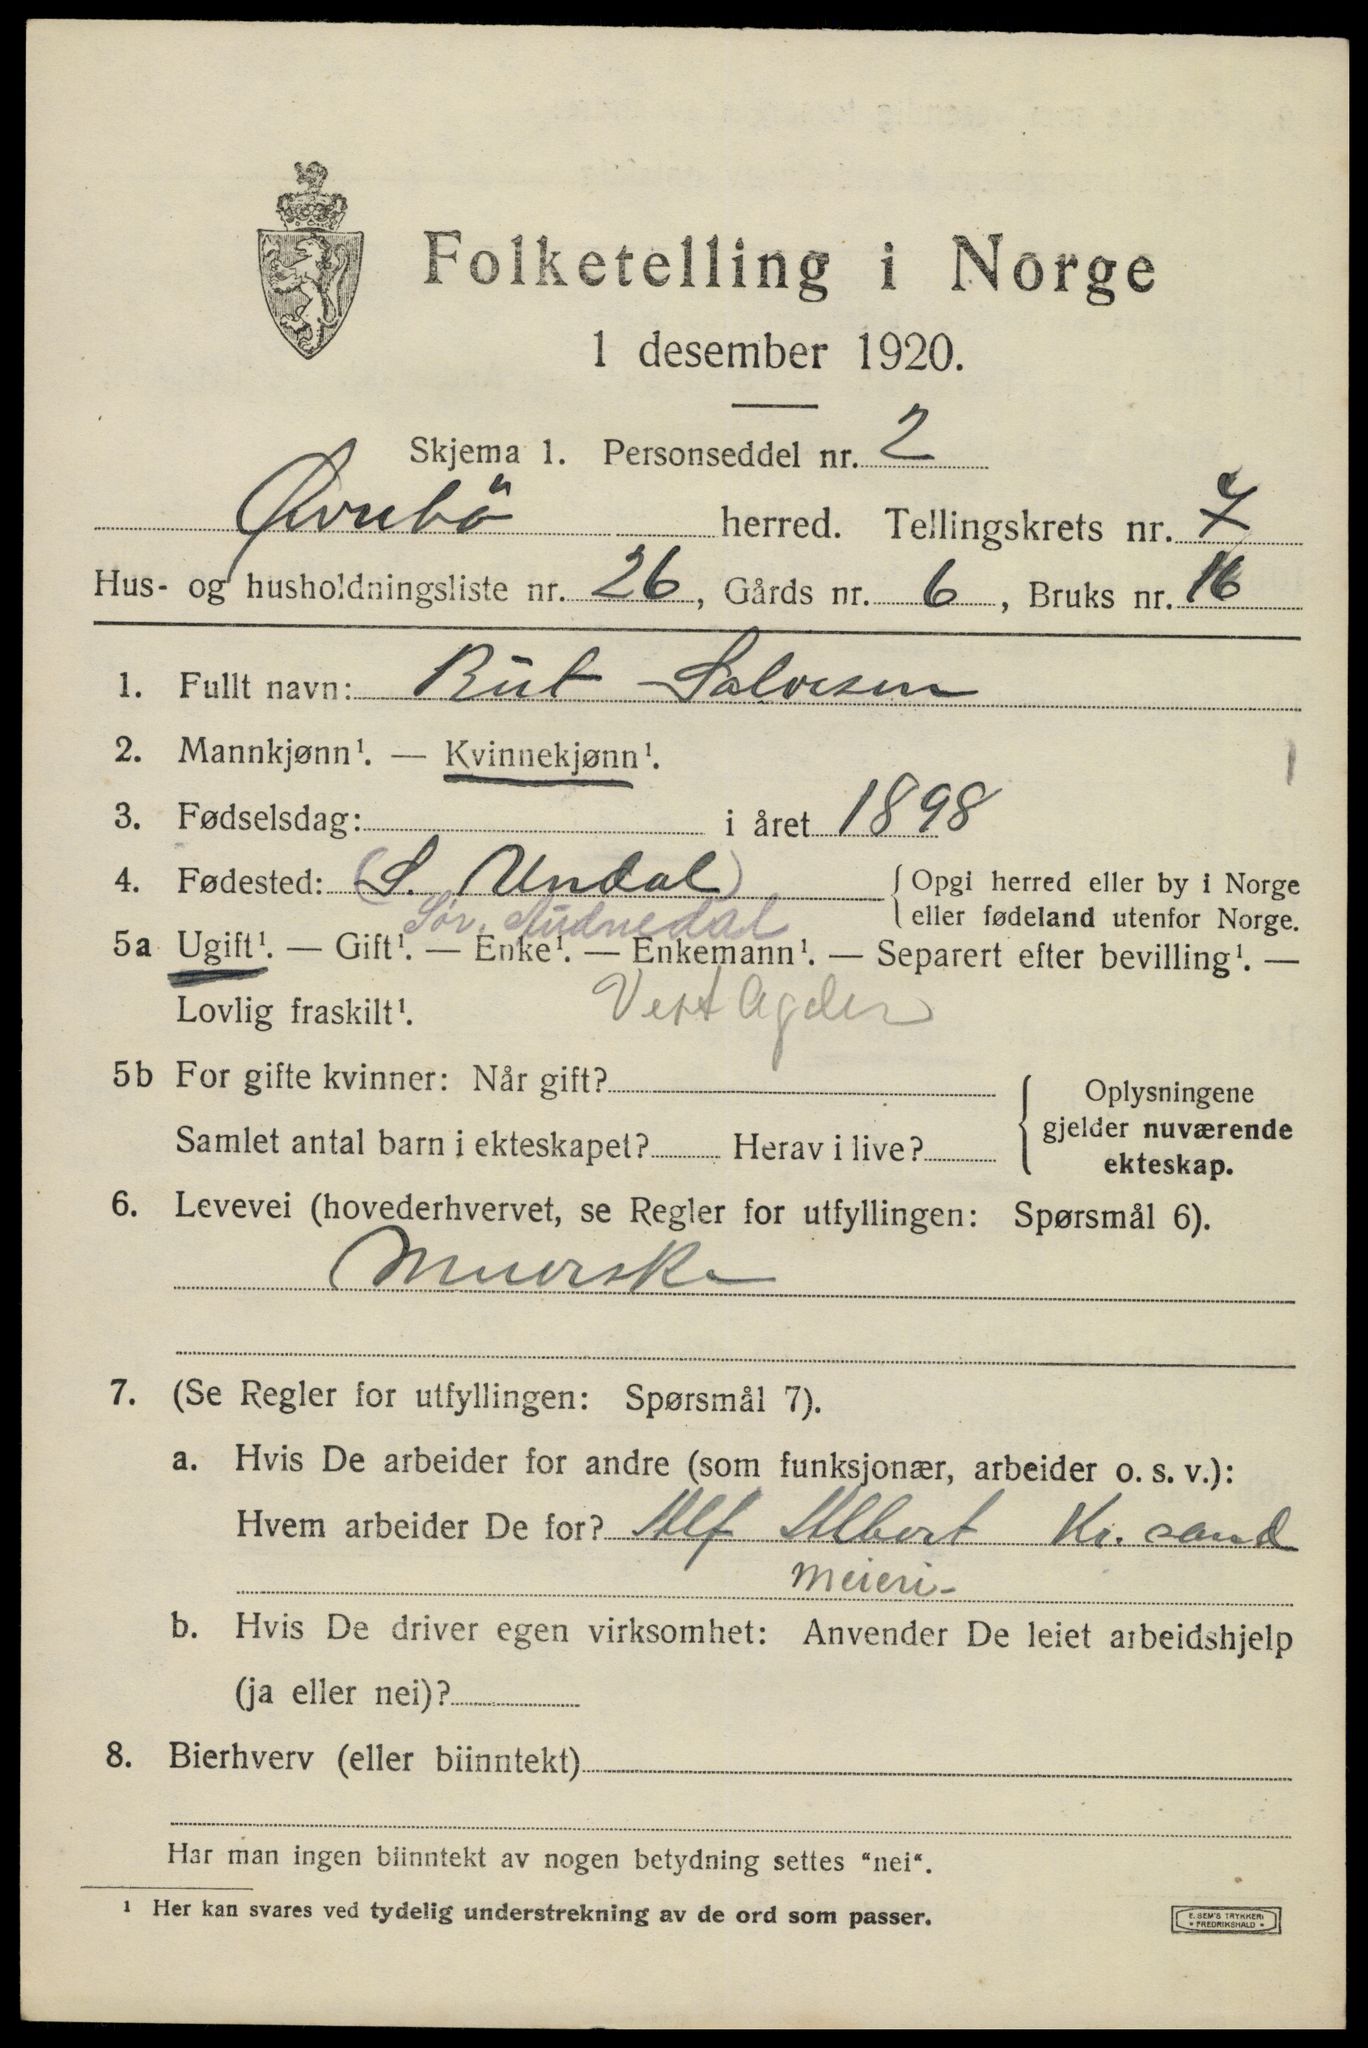 Folketelling i Norge
1 desember 1920.
Skjema 1. Personseddel nr. 2
Øvrebö herred. Tellingskrets nr. 7
Hus- og husholdningsliste nr. 26, Gårds nr. 6, Bruks nr. 16
1. Fullt navn: Rut Salvesen
2. Mannkjønn¹. — Kvinnekjønn¹.
3. Fødselsdag: i året 1898
4. Fødested: (S. Undal) { Opgi herred eller by i Norge
eller fødeland utenfor Norge.
Sør. Audnedal
5a Ugift¹. — Gift¹. — Enke¹. — Enkemann¹. — Separert efter bevilling¹. —
Lovlig fraskilt¹. Vest Agder
5b For gifte kvinner: Når gift? { Oplysningene
Samlet antal barn i ekteskapet? Herav i live? gjelder nuværende
ekteskap.
6. Levevei (hovederhvervet, se Regler for utfyllingen: Spørsmål 6).
Meierske
7. (Se Regler for utfyllingen: Spørsmål 7).
a. Hvis De arbeider for andre (som funksjonær, arbeider o. s. v.):
Hvem arbeider De for? Alf Albert Kr. sand
Meieri-
b. Hvis De driver egen virksomhet: Anvender De leiet arbeidshjelp
(ja eller nei)?
8. Bierhverv (eller biinntekt)
Har man ingen biinntekt av nogen betydning settes "nei".
¹ Her kan svares ved tydelig understrekning av de ord som passer.
E. SEM'S TRYKKERI
* FREDRIKSHALD *